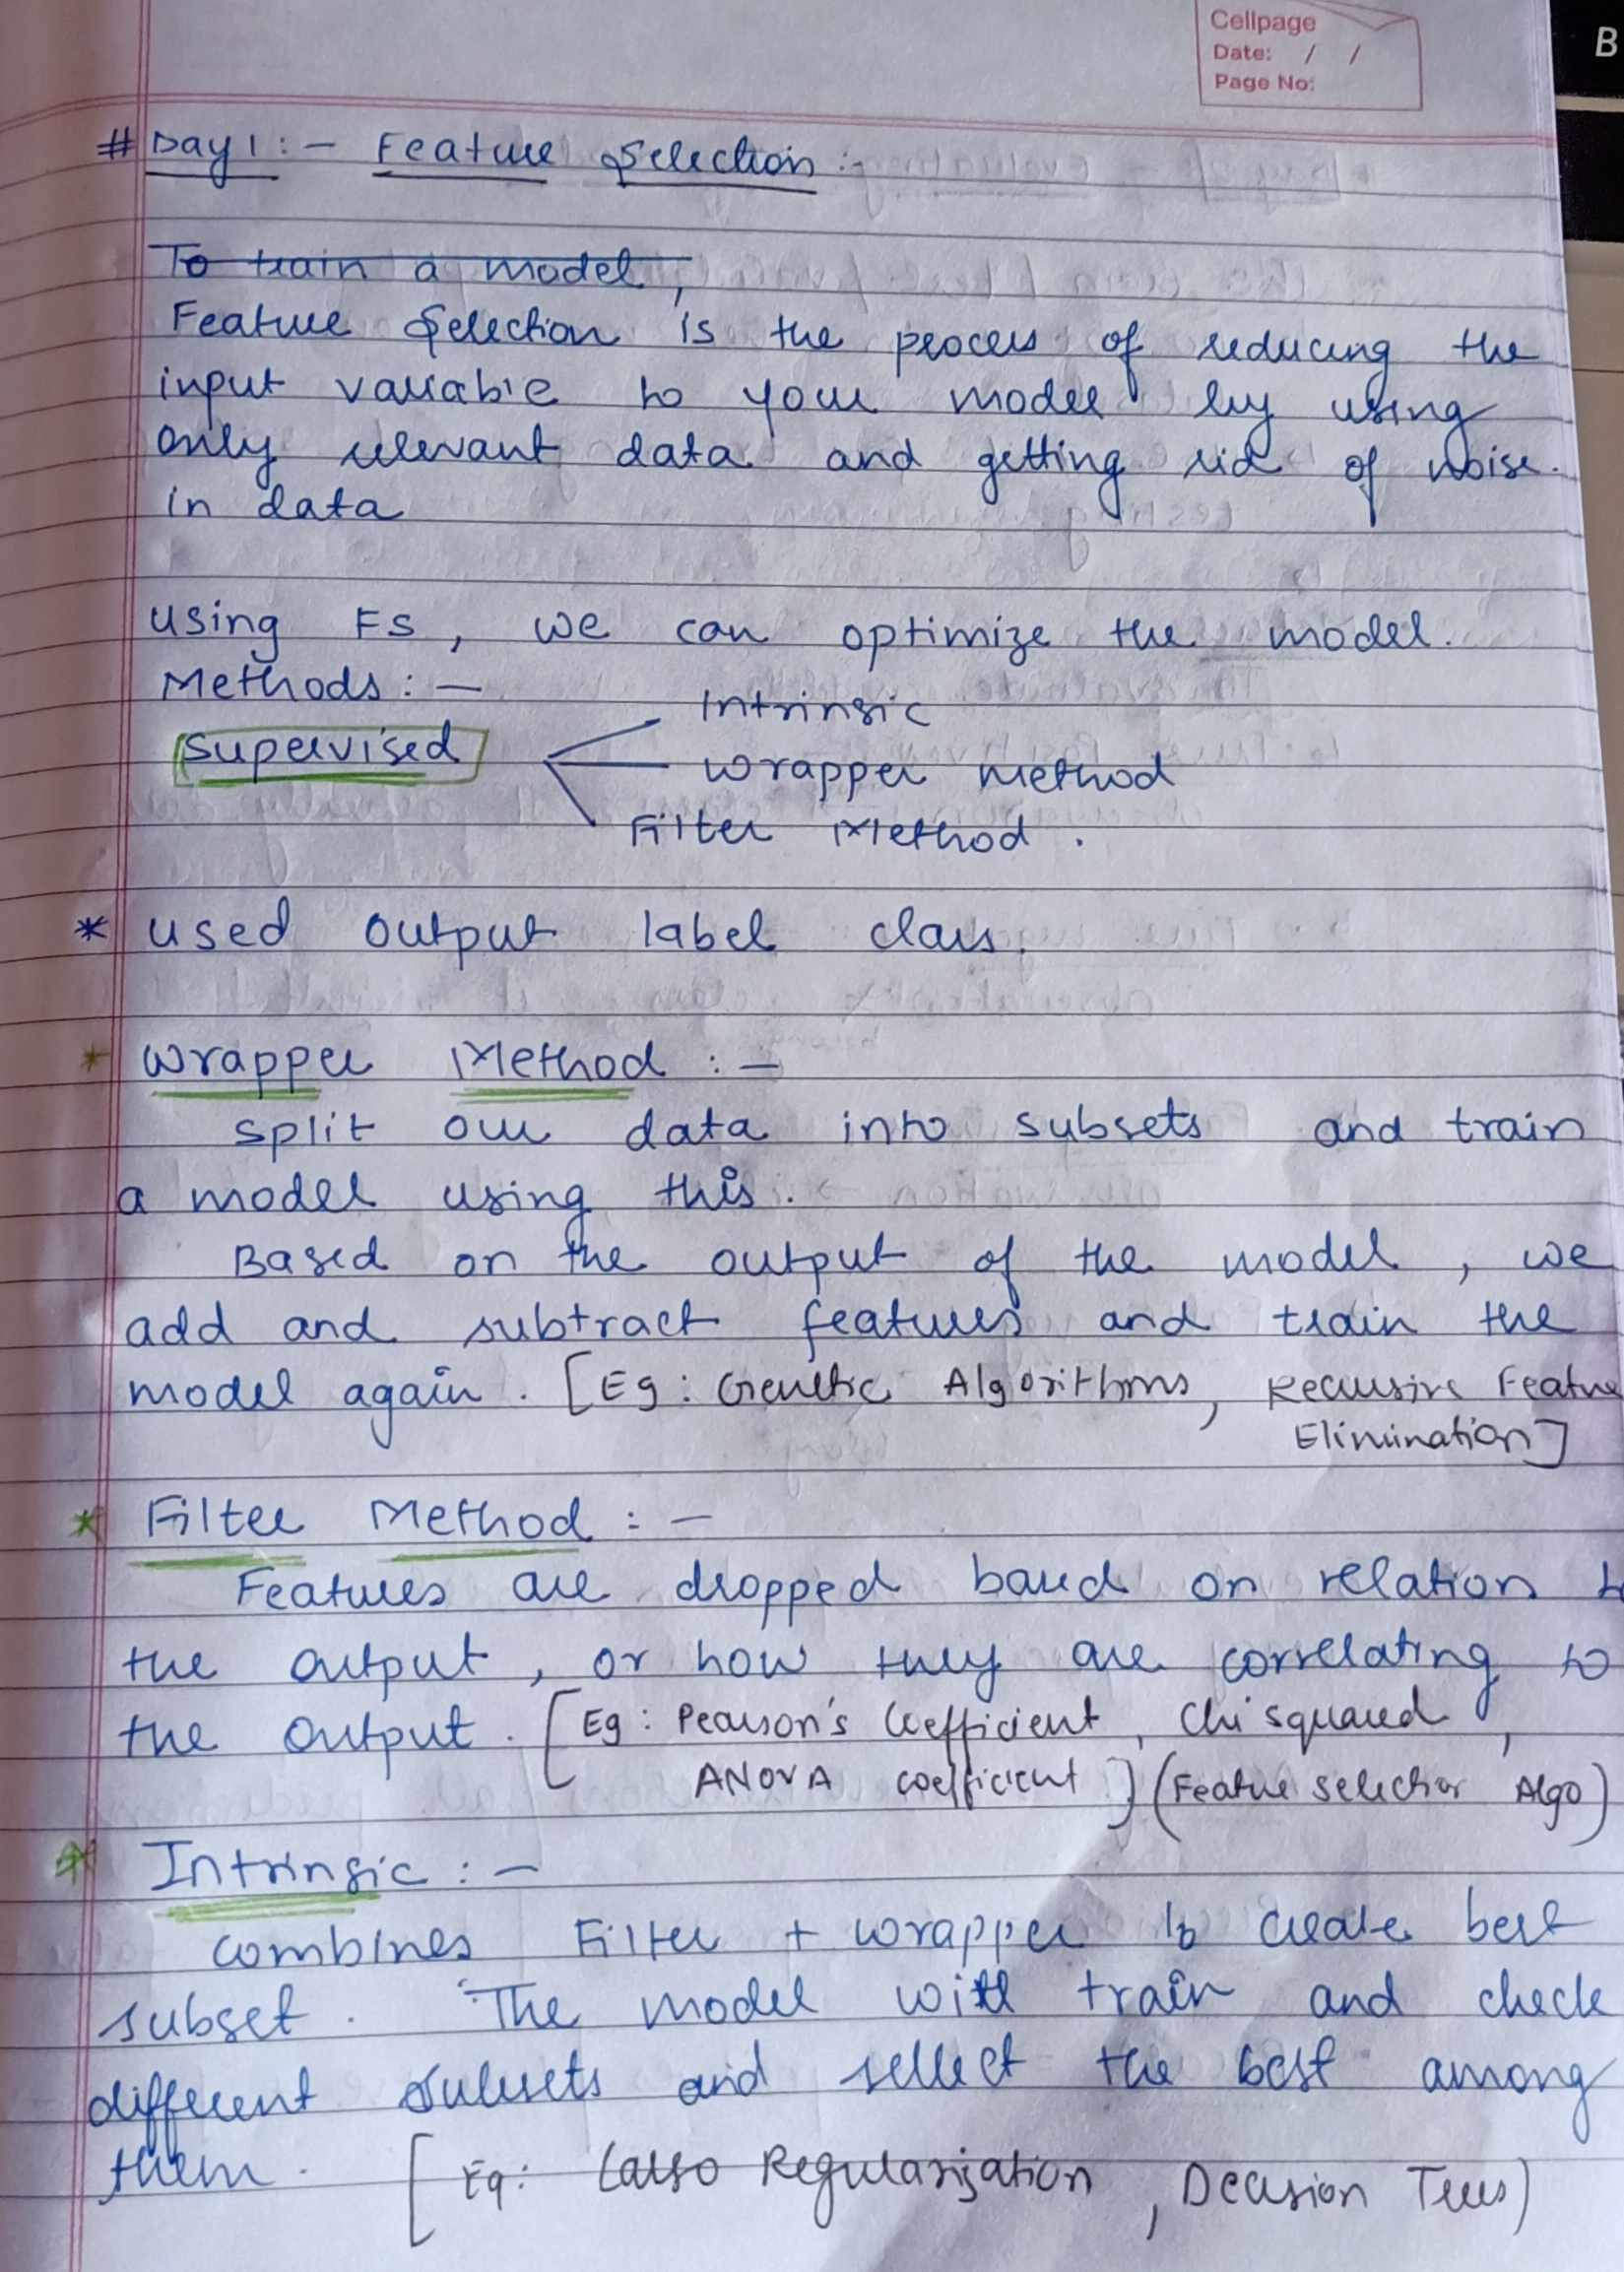 Cellpage
Date: / /
Page No:
B
# Day 1 :- Feature Selection :-
To train a model,
Feature Selection is the process of reducing the
input variable to your model by using
only relevant data and getting rid of noise.
in data
Using FS, we can optimize the model.
Methods :-
Intrinsic
Supervised
Wrapper Method
Filter Method.
* Used output label class.
* Wrapper Method :-
split our data into subsets and train
a model using this.
Based on the output of the model, we
add and subtract features and train the
model again. [Eg: Genetic Algorithms, Recursive Feature
Elimination]
* Filter Method :-
Features are dropped based on relation
the output, or how they are correlating to
the output. [Eg: Pearson's Coefficient, Chi squared,
ANOVA coefficient] (Feature selection Algo)
* Intrinsic :-
combines Filter + Wrapper to create best
subset. The model will train and check
different subsets and sellect the best among
them. [Eg: Lasso Regularization, Decision Trees)